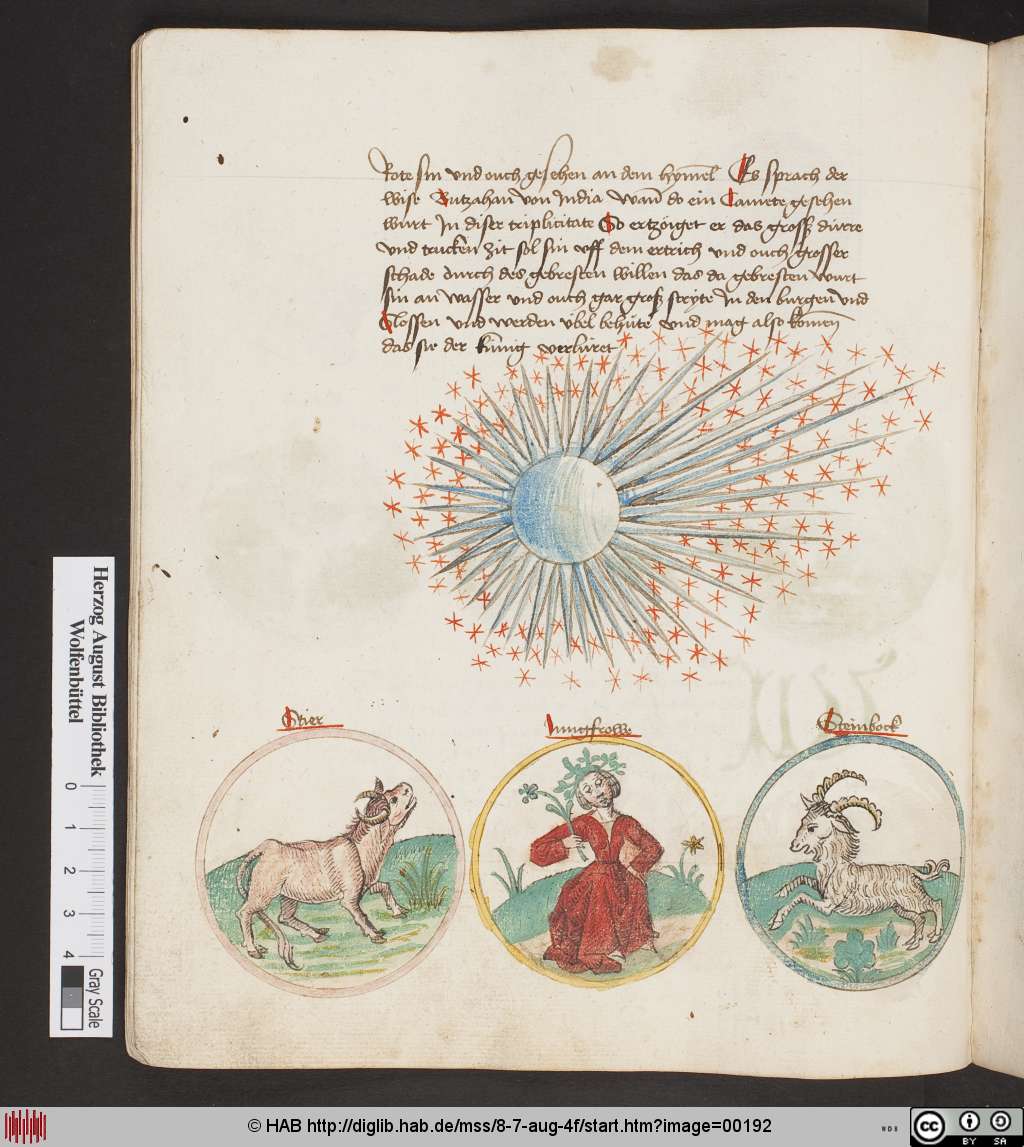 Rote sin und ouch gesehen an dem hymel Es sprach der
wise Butzahan von India Wan do ein Camete gesehen
wurt In diser triplicitate So ertzöiget er das grossz dürre
und trucken zit sol sin uff dem ertrich und ouch grosser
schade durch des gebresten willen das da gebresten wurt
sin an wasser und ouch gar grosz stryte In den burgen und
Slossen und werden übel behüte und mag also komen
das sie der künig verlüret
Stier
Iungfrowe
Steinbock
Herzog August Bibliothek
Wolfenbüttel
0 1 2 3 4
Gray Scale
© HAB http://diglib.hab.de/mss/8-7-aug-4f/start.htm?image=00192
WDB
cc BY SA